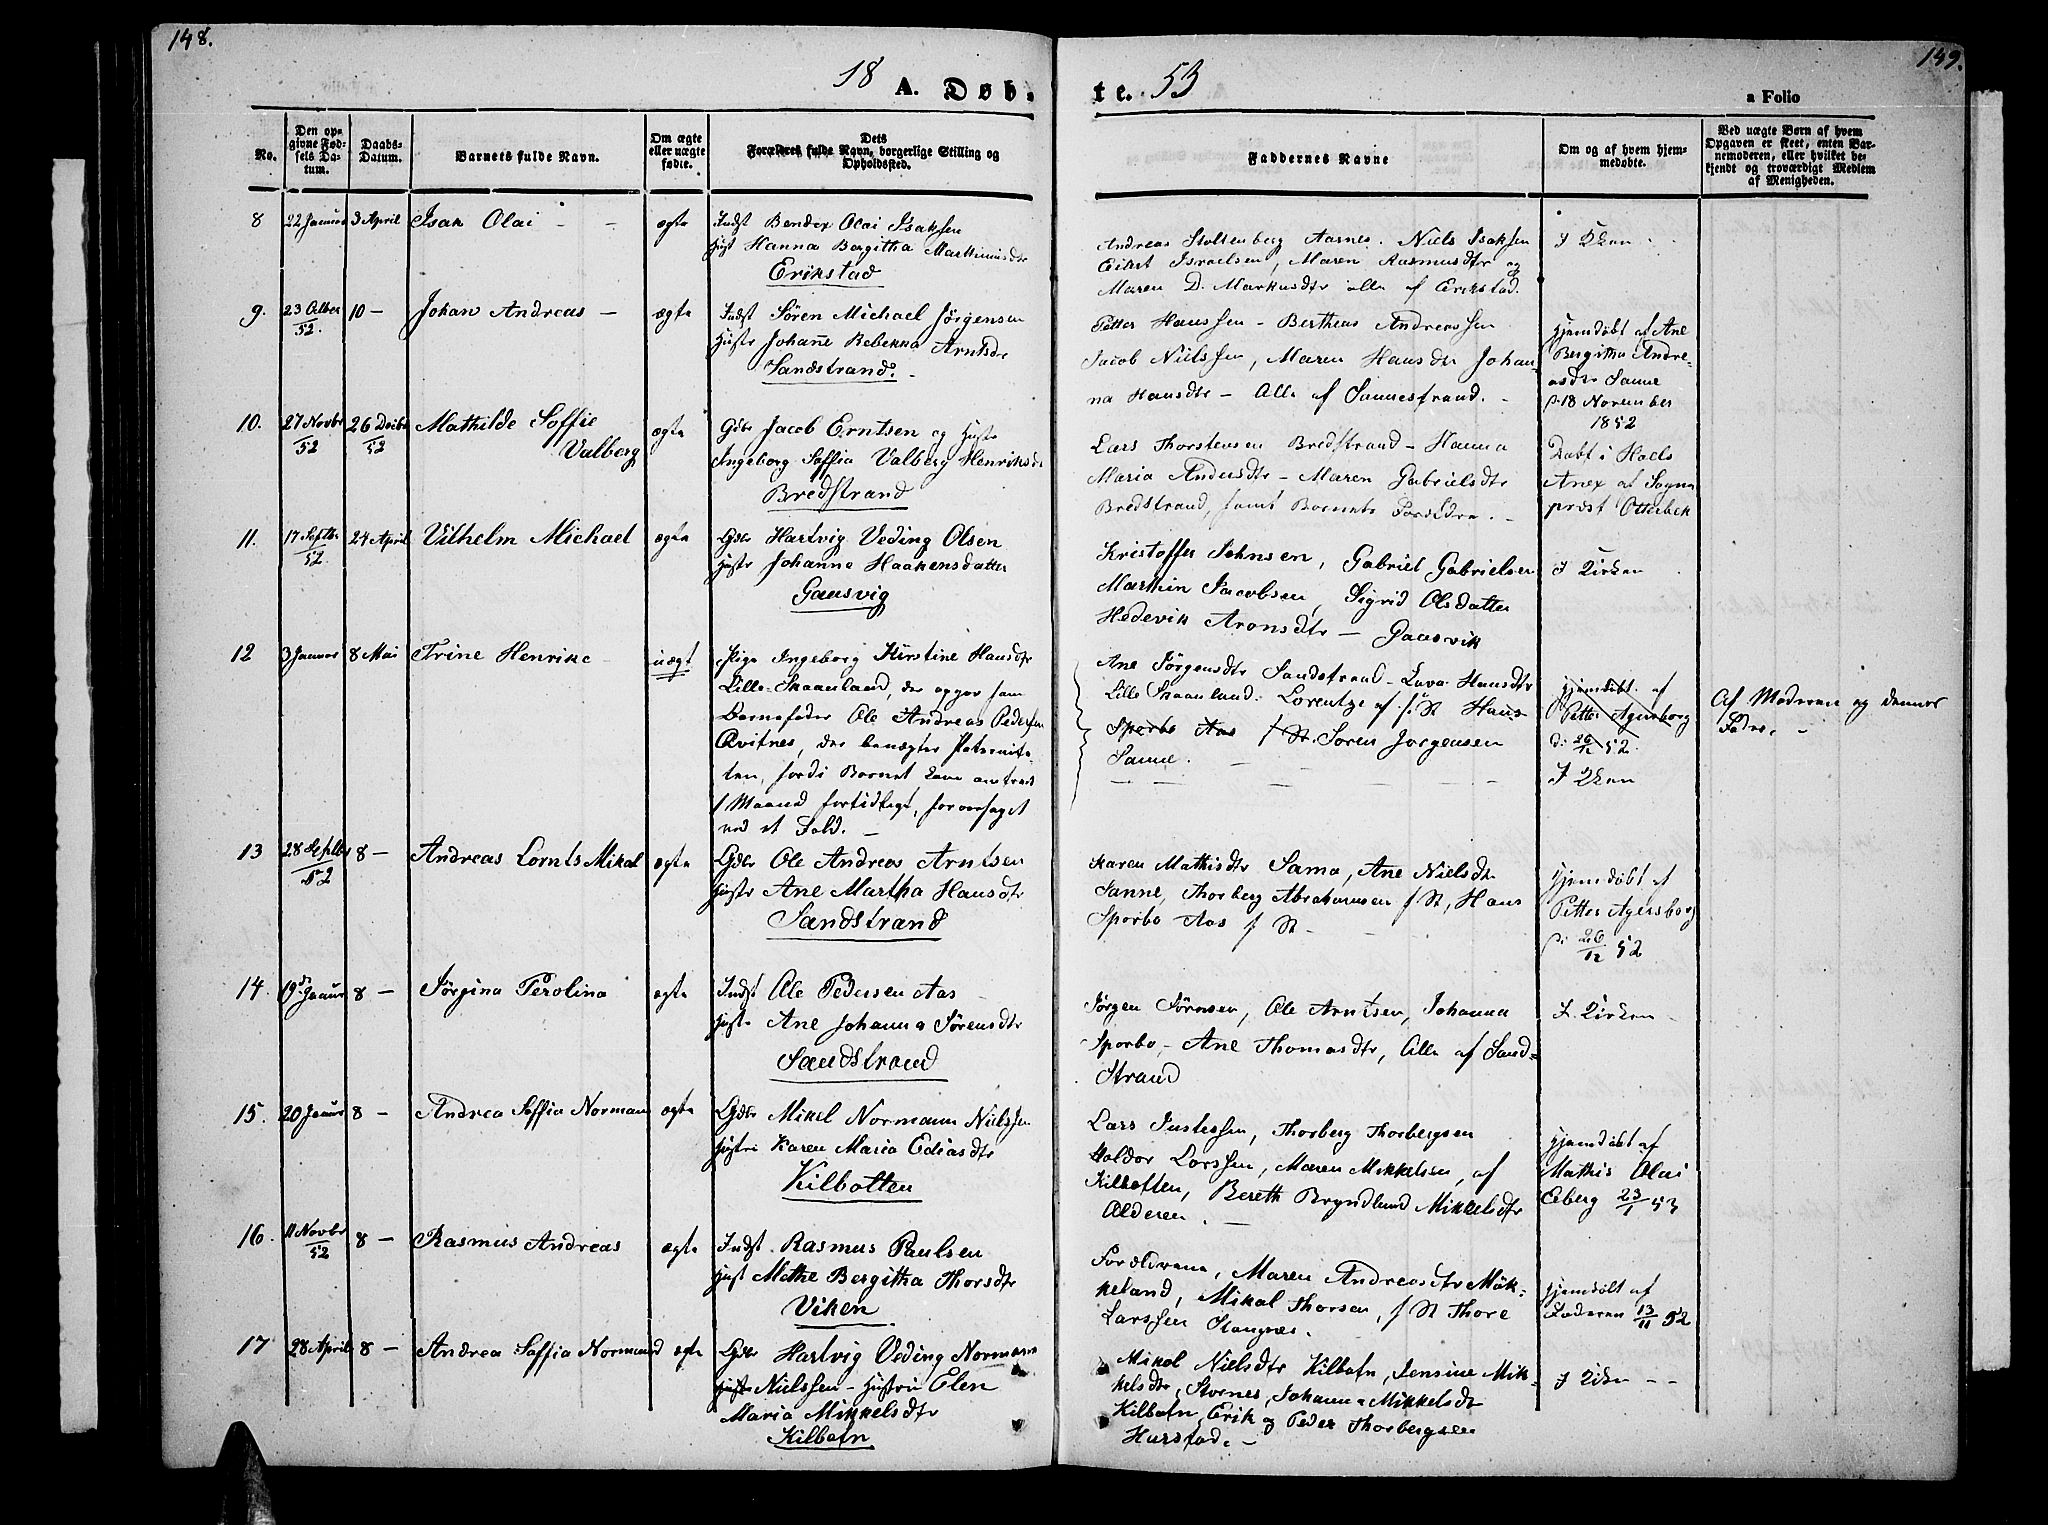 148.
149.
18 A. Døb-
te. 53
a Folio
No.
Den op-
givne Fød-
sels Da-
tum.
Daabs-
Datum.
Barnets fulde Navn.
Om ægte
eller uægte
fødte.
Dets
Forældres fulde Navn, borgerlige Stilling og
Opholdssted.
Faddernes Navne
Om og af hvem hjem-
medøbte.
Ved uægte Børn af hvem
Opgaven er skeet, enten Bar-
nemoderen, eller hvilket be-
kjendt og troværdigt Medlem
af Menigheden.
8 22 Januar 3 April Isak Olai - - ægte
Indst Bendex Olai Isaksen
Hust Hanna Bergitha Marthinusdtr
Erikstad
Andreas Stoltenberg Aarnes. Niels Isaksen
Eilert Israelsen, Maren Rasmusdtr og
Maren D. Markusdtr alle af Erikstad.
I Kirken
9. 23 Octber 52 10 - Johan Andreas - ægte
Indst Sören Michael Jörgensen
Hustr Johañe Rebekka Arntsdr
Sandstrand. -
Petter Hanssen - Bertheas Andreassen
Jacob Nielssen, Maren Hansdtr Johan-
na Hansdtr - Alle af Sannestrand. -
Hjemdöbt af Ane
Bergitha Andre-
asdtr Sanne
18 November
1852
10. 27 Novbr 52 26 Decbr 52 Mathilde Soffie
Valberg ægte
Gdbr Jacob Erntsen og Hustr
Ingeborg Soffia Valberg Henriksdr
Bredstrand
Lars Thorstensen Bredstrand - Hanna
Maria Andersdtr - Maren Gabrielsdtr
Bredstrand, samt Barnets Forældre. -
Döbt i Hols
Anex af Sogne
præst Otterbek
11. 17 Septbr 52 24 April Vilhelm Michael ægte
Gdbr Hartvig Veding Olsen
Hustr Johanne Haakensdatter
Gaasvig
Kristoffer Johnsen, Gabriel Gabrielsen
Marthin Jacobsen, Sigrid Olsdatter
Hedevik Aronsdtr - Gaasvik
I Kirken
12 3 Januar 8 Mai Trine Henrike - uægt
Pige Ingeborg Kirstine Hansdtr
Lille-Skaanland, der opgav som
Barnefader Ole Andreas Pedersen
Qvitnes, der benægter Paternite-
ten, fordi Barnet
1 Maaned fortidligt, foraarsaget
ved et Fald. -
Ane Jörgensdtr Sandstrand - Lava Hansdtr
Lille Skaanland. Lorentze af f. St Hans
Sporbo Aas f St. Soren Jorgensen
Sanne. -
Hjemdöbt af
Petter Agersborg
d: 26/12 52.
I Kirken
Af Moderen og dennes
Fader. -
13 28 Septbr 52 8 - Andreas Lornts Mikal ægte
Gdbr Ole Andreas Arntsen
Hustr Ane Martha Hansdtr
Sandstrand
Karen Mathisdtr Sama, Ane Nielsdtr
Sanne, Thorberg Abrahamsen f St, Hans
Sporbo Aas f St -
Hjemdöbt af
Petter Agersborg
26/12 52
14. 19d Januar 8 - Jörgina Perolina ægte
Indst Ole Pedersen Aas
Hustr Ane Johanna Sörensdtr
Sandstrand
Jörgen Sörnsen, Ole Arntsen, Johanna
Sporbo, - Ane Thomasdtr, Alle af Sand-
Strand
I Kirken -
15. 20 Januar 8 - Andrea Soffia Norman ægte
Gdbr Mikel Normann Nielssen
Hustru Karen Maria Ediasdtr
Kilbotten
Lars Justessen, Thorberg Thorbergsen
Haldor Larssen, Maren Mikkelsen, af
Kilbotten, Bereth Bryndlund Mikkelsdtr
Alderen. -
Hjemdöbt af
Mathis Olai
Eberg 23/1 53
16. 11 Novbr 52 8 - Rasmus Andreas ægte
Indst. Rasmus Paulsen
Hust Mathe Bergitha Thorsdtr
Viken
Forældrene, Maren Andreasdtr Mök-
keland, Mikal Thorsen, f St Thore
Larssen Stangnes.
Hjemdöbt af
Faderen 13/11 52
17 28 April 8 - Andrea Soffia Normand ægte
Gdbr Hartvig Veding Normann
Nielssen - Hustru Elen
Maria Mikkelsdtr
Kilbotn
Mikal Nielsdtr Kilbotn, Jensine Mik-
kelsdtr, Stornes, Johanna Mikkelsdtr
Kilbotn, Erik og Peder Thorbergsen
Harstad. -
I Kirken - -